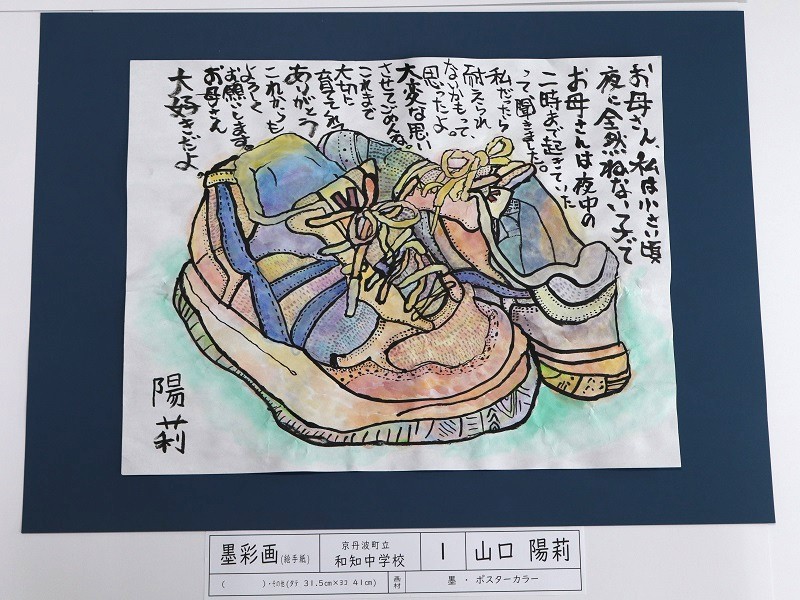 お母さん、私は小さい頃
夜に全然ねない子で
お母さんは夜中の
二時まで起きていた
って聞きました。
私だったら
耐えられ
ないかもって、
思ったよ。
大変な思い
させてごめんね。
これまで
大切に
育ててくれて
ありがとう
これからも
よろしく
お願いします。
お母さん
大好きだよ。
陽莉
墨彩画(絵手紙)
京丹波町立
和知中学校
1
山口 陽莉
( )・その他(タテ 31.5cm×ヨコ 41cm)
画材
墨 ・ ポスターカラー